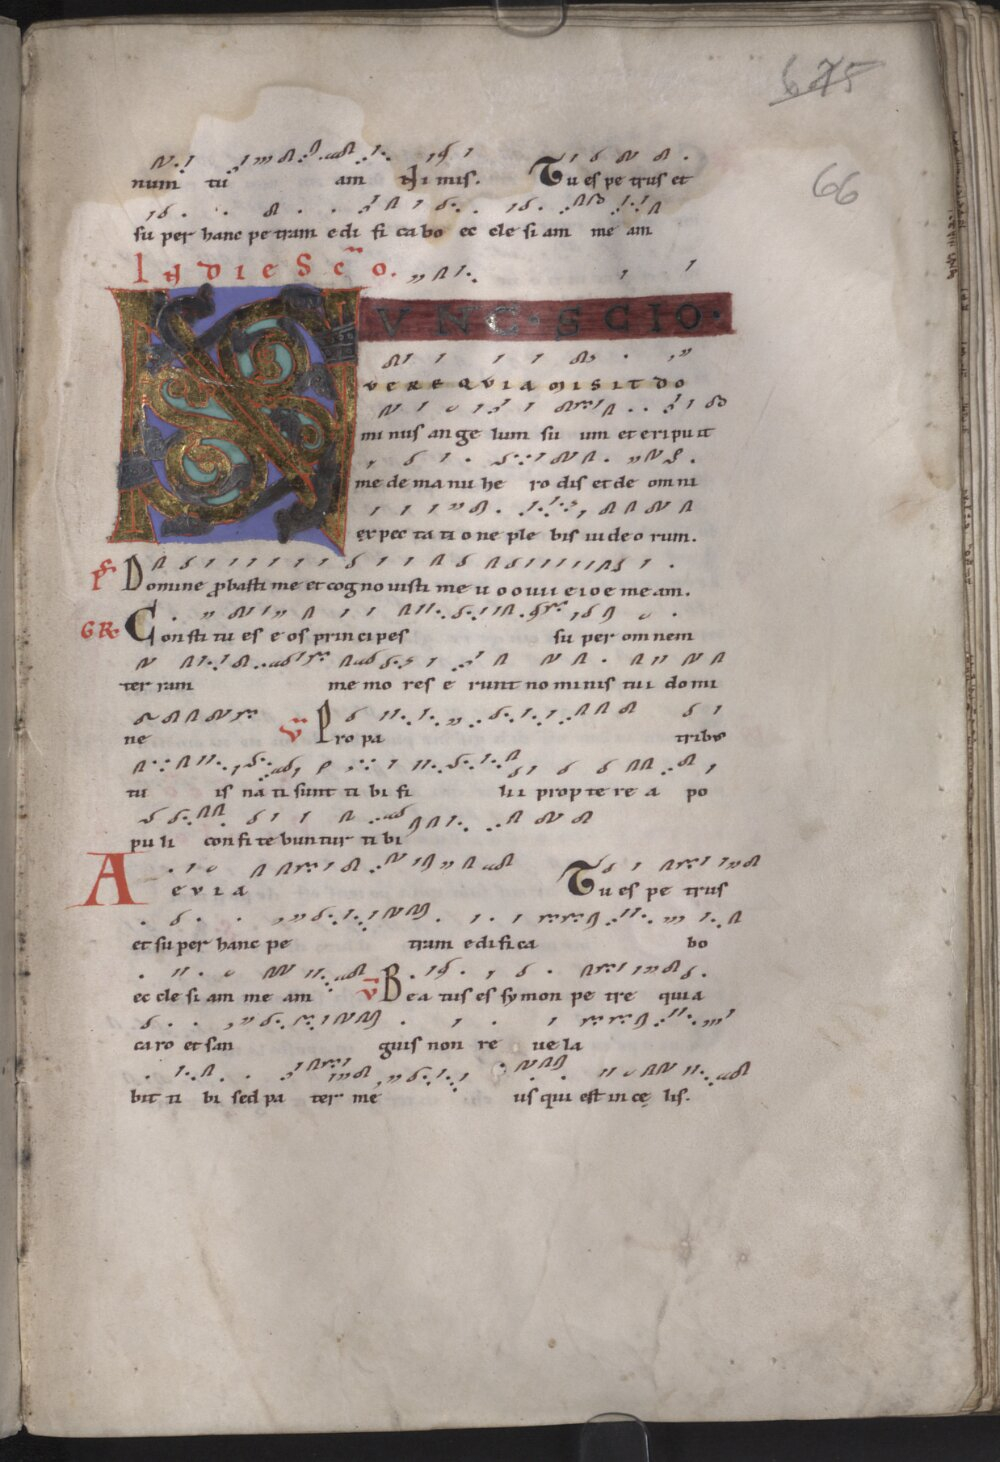 675
66
num tu am ni mis. Tu es pe trus et
su per hanc pe tram e di fi ca bo ec cle si am me am
IN DIE SCO.
NUNC · SCIO ·
VERE QVIA MISIT DO
mi nus an ge lum su um et eri pu it
me de ma nu he ro dis et de om ni
expec ta ti o ne ple bis iu de o rum.
ps Domine pbasti me et cog no uisti me u o o u u e i o e me am.
GR Consti tu es e os prin ci pes su per om nem
ter ram me mo res e runt no mi nis tu i do mi
ne V Pro pa tribus
tu is na ti sunt ti bi fi li i prop te re a po
pu li con fi te bun tur ti bi
A e v i a Tu es pe trus
et su per hanc pe tram e di fi ca bo
ec cle si am me am V Be a tus es sy mon pe tre qui a
ca ro et san guis non re ue la
bit ti bi sed pa ter me us qui est in cę lis.